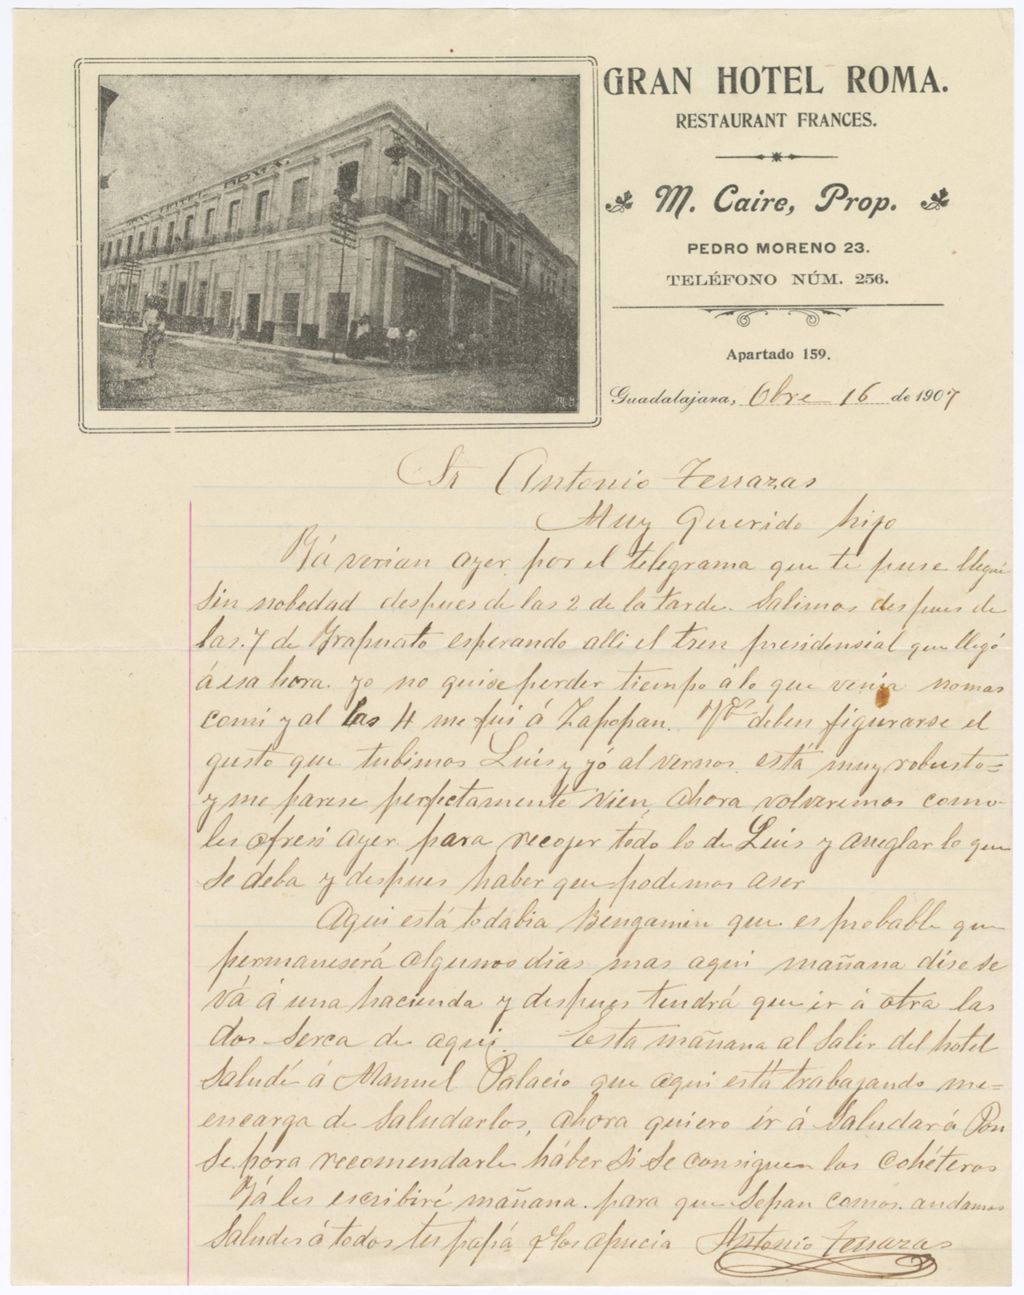 GRAN HOTEL ROMA.
RESTAURANT FRANCES.
M. Caire, Prop.
PEDRO MORENO 23.
TELÉFONO NÚM. 256.
Apartado 159.
Guadalajara, Obre 16 de 1907
Sr Antonio Terrazas
Muy Querido hijo
Yá verian ayer por el telegrama que te puse llegué
sin nobedad despues de las 2 de la tarde. Salimos despues de
las 7 de Yrapuato esperando alli el tren presidensial que llegó
á esa hora. yo no quise perder tiempo á lo que venia nomas
comi y al las 4 me fui á Zapopan. Vds deben figurarse el
gusto que tubimos Luis y yó al vernos. está muy robusto
y me parese perfectamente vien, ahora volveremos como
les ofresi ayer para recojer todo lo de Luis y arreglar lo que
se deba y despues haber que podemos aser
Aqui está todabia Bengamin que es probable que
permaneserá algunos dias mas aqui mañana dise se
vá á una hacienda y despues tendrá que ir á otra las
dos serca de aqui. Esta mañana al salir del hotel
saludé á Manuel Palacio que aqui está trabajando me
encarga de saludarlos, ahora quiero ír á saludar á Pon
se para recomendarle háber si se consiguen los cohéteros
Yá les escribiré mañana para que sepan comos andamos
Saludes á todos tu papá q los aprecia Antonio Terrazas